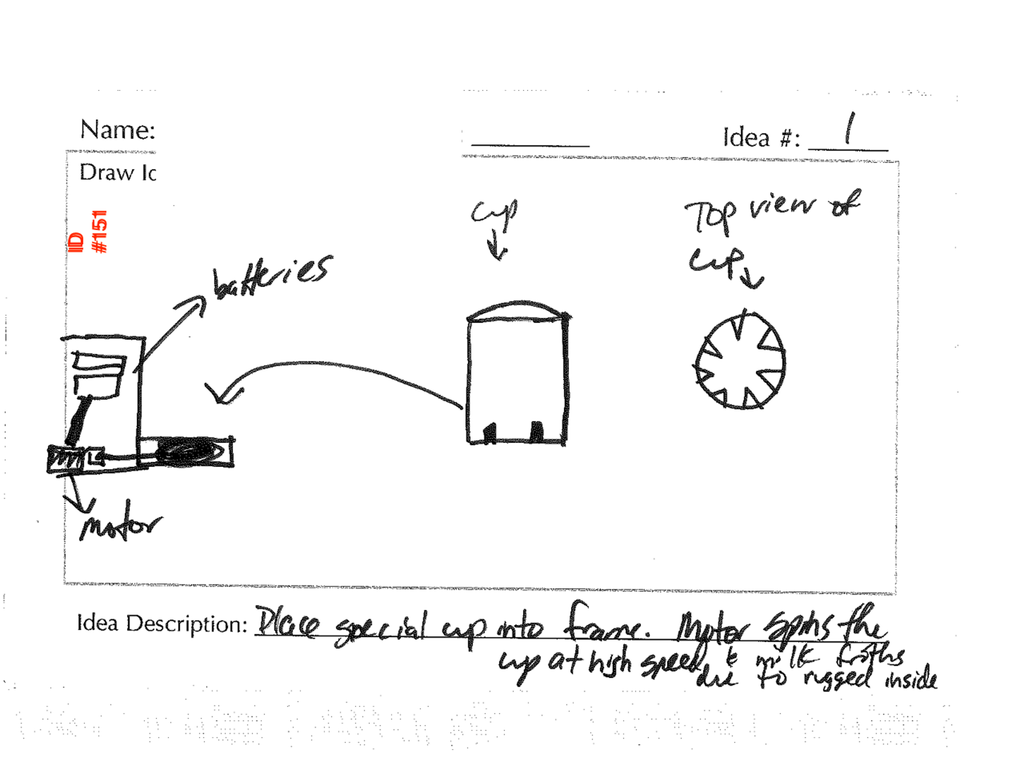 Name:
Idea #: 1
Draw Id
ID
#151
cup
Top view of
cup
batteries
motor
Idea Description: Place special cup into frame. Motor spins the
cup at high speed & milk froths
due to rugged inside